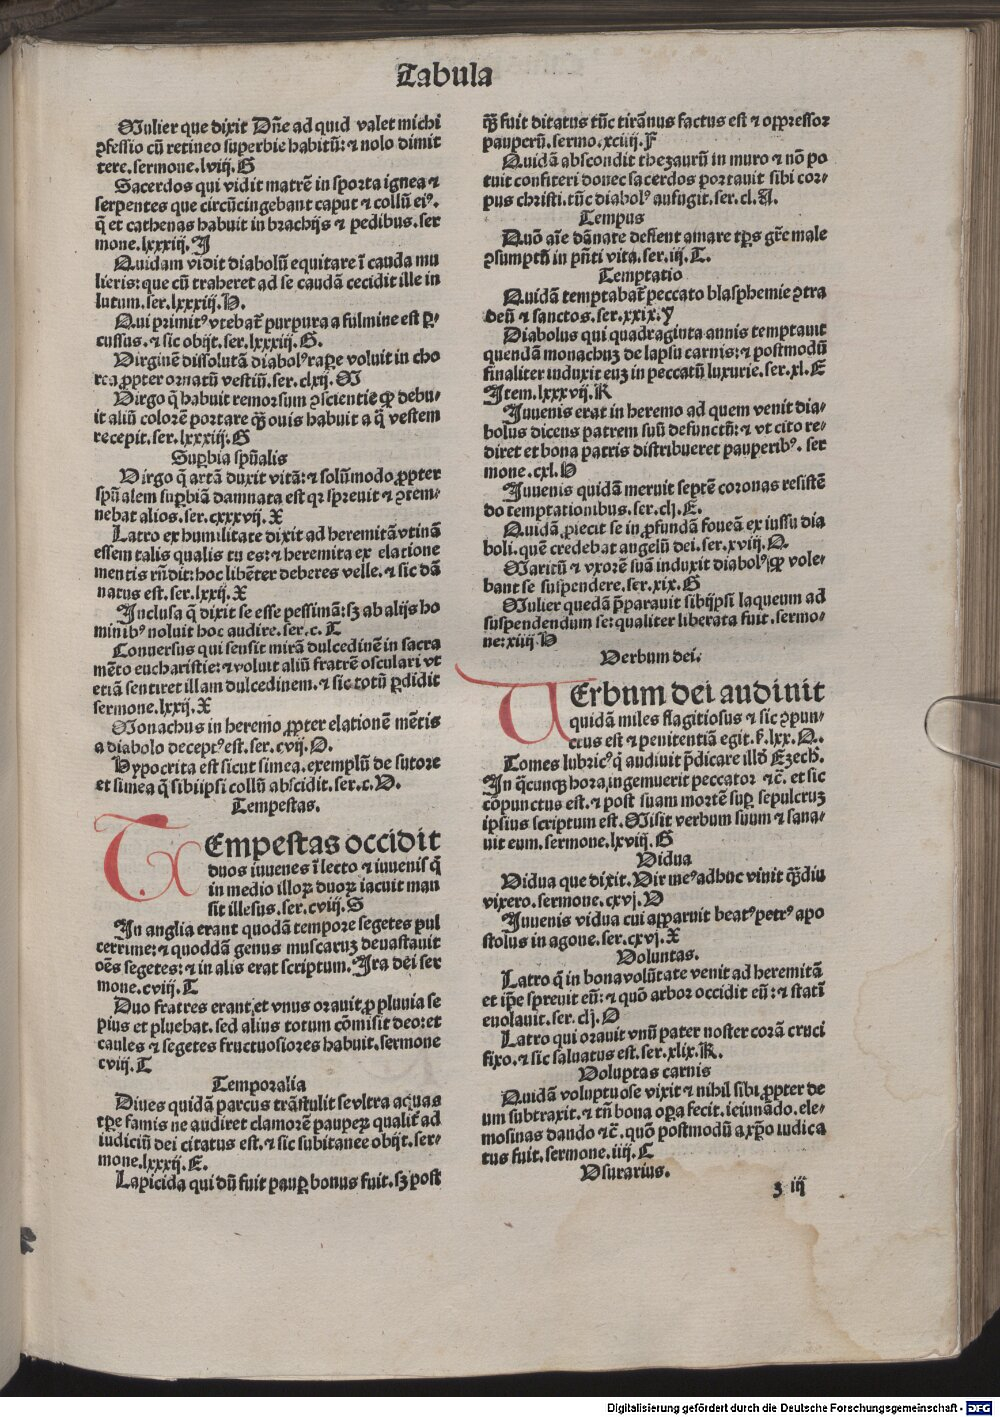 Tabula
Mulier que dixit Dñe ad quid valet michi
ꝓfessio cū retineo superbie habitū: ⁊ nolo dimit
tere. sermone. lviij. G
Sacerdos qui vidit matrē in sporta ignea ⁊
serpentes que circūcingebant caput ⁊ collū eiꝰ.
q̄ et cathenas habuit in brachijs ⁊ pedibus. ser
mone. lxxxiij. J
Quidam vidit diabolū equitare ī cauda mu
lieris: que cū traheret ad se caudā cecidit ille in
lutum. ser. lxxxiij. H.
Qui primitꝰ vtebat̄ purpura a fulmine est ꝑ
cussus. ⁊ sic obijt. ser. lxxxiij. G.
Virginē dissolutā diabolꝰ raꝑe voluit in cho
rea ꝓpter ornatū vestiū. ser. clxij. M
Virgo q̄ habuit remorsum ꝯscientie ꝙ debu-
it aliū colorē portare q̄ꝫ ouis habuit a q̄ vestem
recepit. ser. lxxxiij. G
Suꝑbia spūalis
Virgo q̄ artā duxit vitā: ⁊ solūmodo ꝓpter
spūalem suꝑbiā damnata est qꝛ spreuit ⁊ ꝯtem-
nebat alios. ser. cxxxvij. X
Latro ex humilitate dixit ad heremitā vtinā
essem talis qualis tu es: ⁊ heremita ex elatione
mentis rn̄dit: hoc libēter deberes velle. ⁊ sic dā
natus est. ser. lxxij. X
Inclusa q̄ dixit se esse pessimā: sꝫ ab alijs ho
minibꝰ noluit hoc audire. ser. c. T
Conuersus qui sensit mirā dulcedinē in sacra
mēto eucharistie: ⁊ voluit aliū fratrē osculari vt
etiā sentiret illam dulcedinem. ⁊ sic totū ꝑdidit
sermone. lxxij. X
Monachus in heremo ꝓpter elationē mētis
a diabolo deceptꝰ est. ser. cvij. O.
Hypocrita est sicut simea. exemplū de sutore
et simea q̄ sibiipsi collū abscidit. ser. c. V.
Tempestas.
TEmpestas occidit
duos iuuenes ī lecto ⁊ iuuenis q̄
in medio illoꝝ duoꝝ iacuit man
sit illesus. ser. cviij. S
In anglia erant quodā tempore segetes pul
cerrime: ⁊ quoddā genus muscaꝝ deuastauit
oēs segetes: ⁊ in alis erat scriptum. Ira dei ser
mone. cviij. T
Duo fratres erant et vnus orauit ꝓ pluuia se
pius et pluebat. sed alius totum cōmisit deo: et
caules ⁊ segetes fructuosiores habuit. sermone
cviij. T
Temporalia
Diues quidā parcus trāstulit se vltra aquas
tꝑe famis ne audiret clamorē pauꝑꝝ qualit̄ ad
iudiciū dei citatus est. ⁊ sic subitanee obijt. ser-
mone. lxxxij. E.
Lapicida qui dū fuit pauꝑ bonus fuit. sꝫ post
q̄ꝫ fuit ditatus tūc tirānus factus est ⁊ oppressor
pauperū. sermo. xciiij. F
Quidā abscondit thezaurū in muro ⁊ nō po
tuit confiteri donec sacerdos portauit sibi cor-
pus christi. tūc diabolꝰ aufugit. ser. cl. A.
Tempus
Quō aīe dānate deflent amare tꝑs gr̄e male
ꝯsumptū in pn̄ti vita. ser. iij. T.
Temptatio
Quidā temptabat̄ peccato blasphemie ꝯtra
deū ⁊ sanctos. ser. xxix. y
Diabolus qui quadraginta annis temptauit
quendā monachuꝫ de lapsu carnis: ⁊ postmodū
finaliter induxit euꝫ in peccatū luxurie. ser. xl. E
Item. lxxxvij. K
Iuuenis erat in heremo ad quem venit dia-
bolus dicens patrem suū defunctū: ⁊ vt cito re-
diret et bona patris distribueret pauperibꝰ. ser
mone. cxl. H
Iuuenis quidā meruit septē coronas resistē
do temptationibus. ser. clj. E.
Quidā ꝓiecit se in ꝓfundā foueā ex iussu dia
boli. quē credebat angelū dei. ser. xviij. O.
Maritū ⁊ vxorē suā induxit diabolꝰ ꝙ vole-
bant se suspendere. ser. xix. G
Mulier quedā p̄parauit sibijpsi laqueum ad
suspendendum se: qualiter liberata fuit. sermo-
ne: xiiij H
Verbum dei.
VErbum dei audiuit
quidā miles flagitiosus ⁊ sic ꝯpun-
ctus est ⁊ penitentiā egit. ẜ. lxx. O.
Tomes lubricꝰ q̄ audiuit p̄dicare illđ Ezech.
In q̄cunqꝫ hora ingemuerit peccator ⁊c̄. et sic
cōpunctus est. ⁊ post suam mortē suꝑ sepulcruꝫ
ipsius scriptum est. Misit verbum suum ⁊ sana-
uit eum. sermone. lxviij. G
Vidua
Vidua que dixit. Vir meꝰ adhuc viuit q̄ꝫdiu
vixero. sermone. cxvj. V
Iuuenis vidua cui apparuit beatꝰ petrꝰ apo
stolus in agone. ser. cxvj. X
Voluntas.
Latro q̄ in bona volūtate venit ad heremitā
et ip̄e spreuit eū: ⁊ quō arbor occidit eū: ⁊ statī
euolauit. ser. clj. O
Latro qui orauit vnū pater noster corā cruci
fixo. ⁊ sic saluatus est. ser. xlix. K.
Voluptas carnis
Quidā voluptuose vixit ⁊ nihil sibi ꝓpter de
um subtraxit. ⁊ tn̄ bona oꝑa fecit. ieiunādo. ele-
mosinas dando ⁊c̄. quō postmodū a xp̄o iudica
tus fuit. sermone. iiij. C
Vsurarius.
ʒ iij
Digitalisierung gefördert durch die Deutsche Forschungsgemeinschaft - DFG